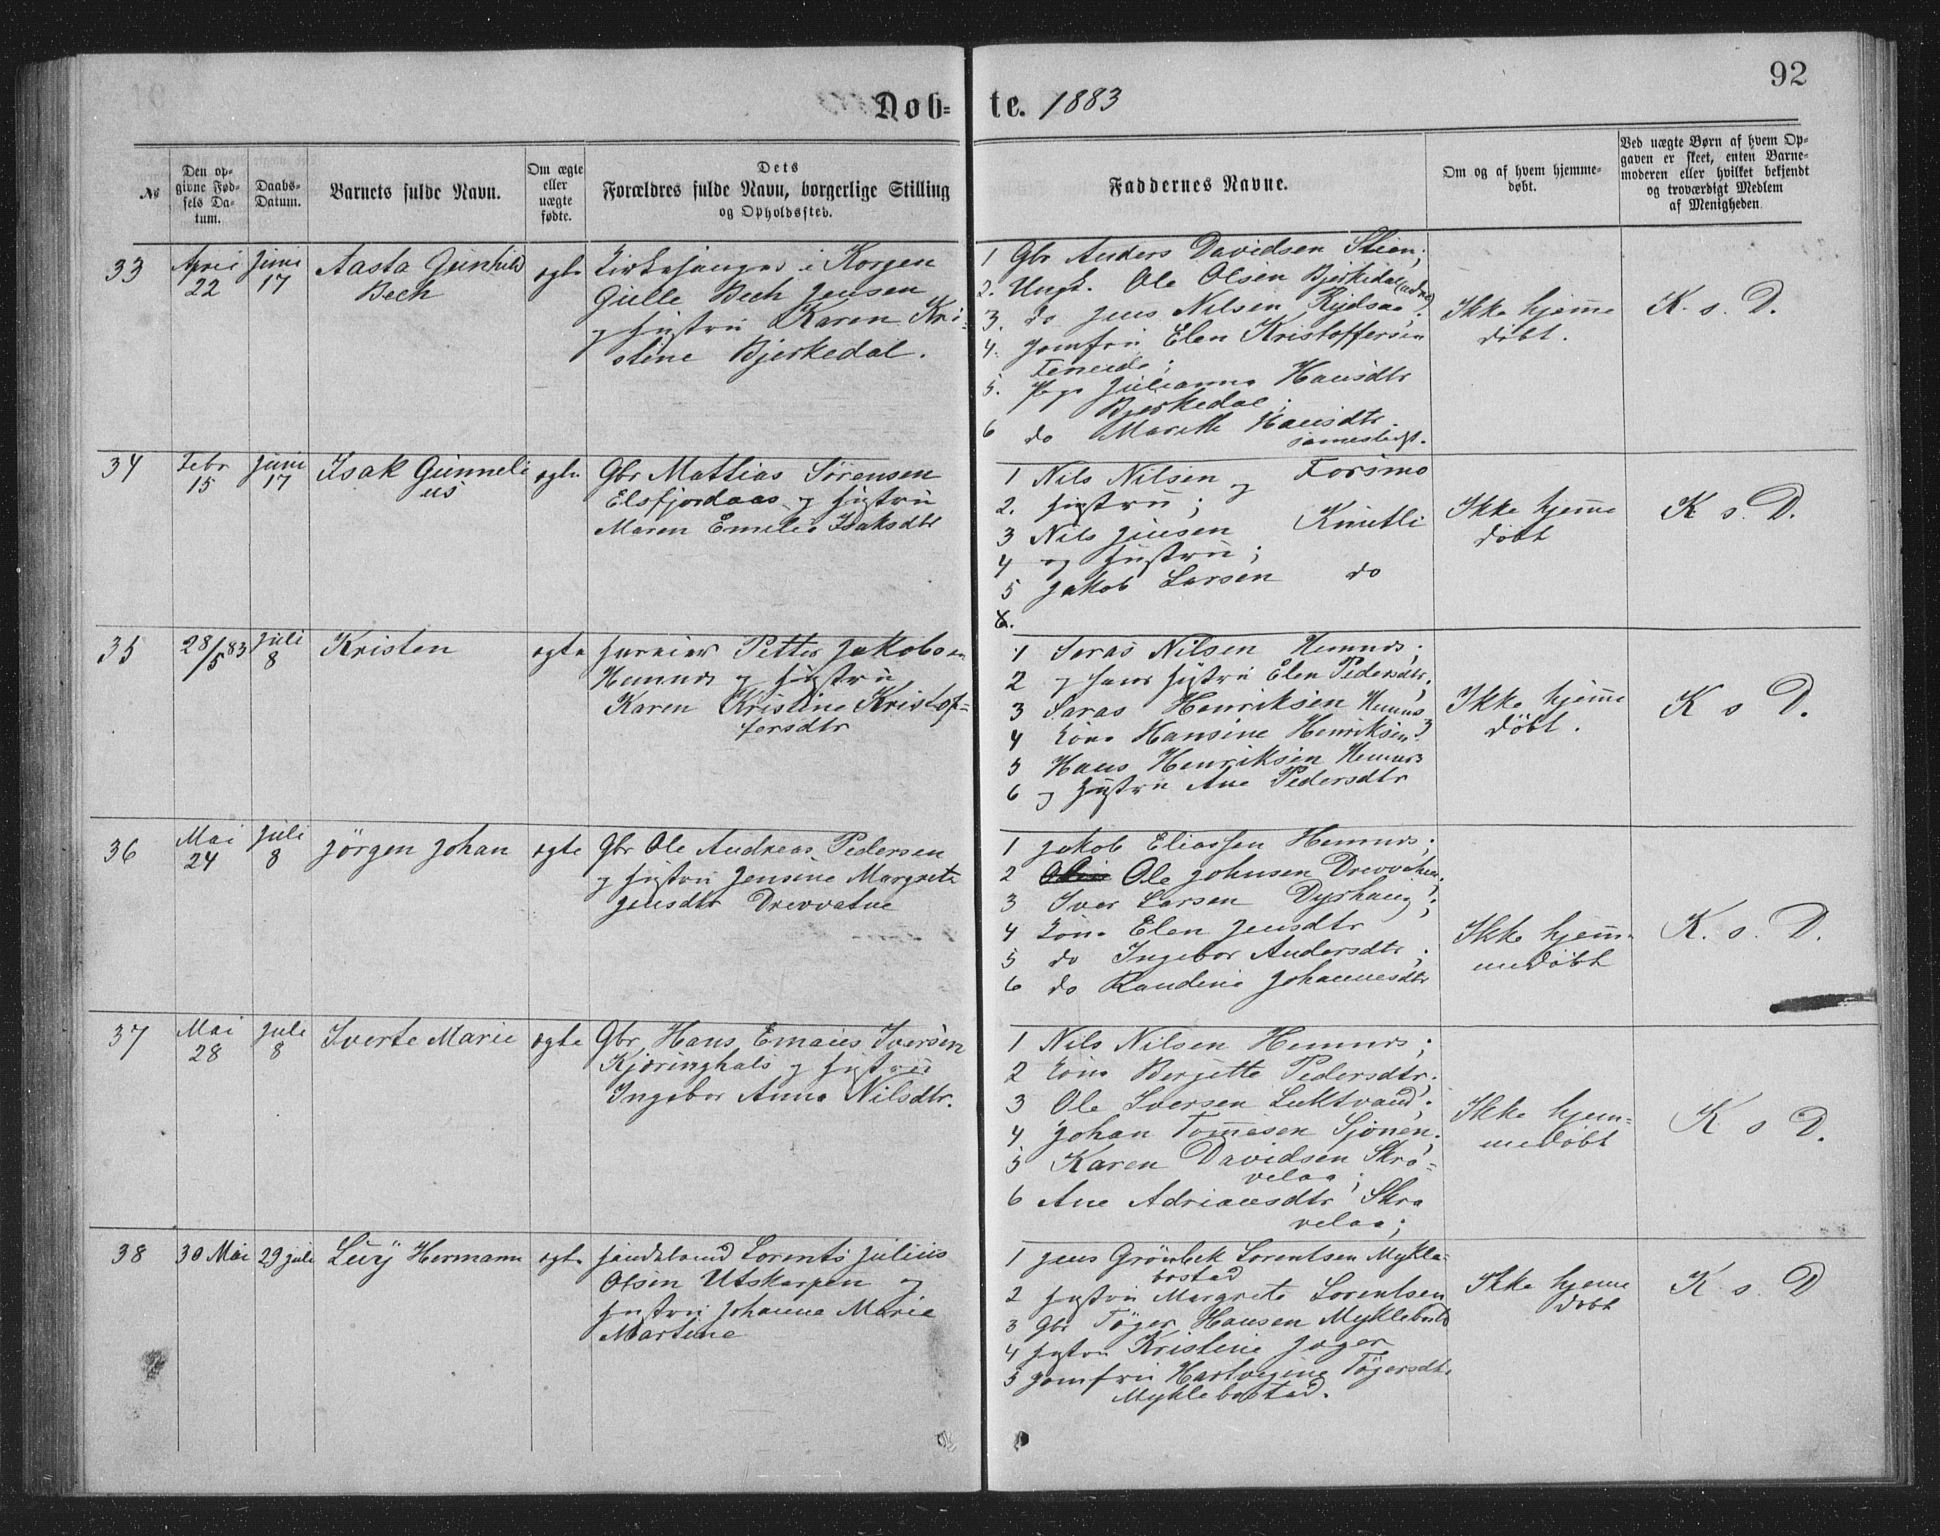 92
Døb= te. 1883
№
Den op=
givne Fød=
sels Da=
tum.
Daabs=
Datum.
Barnets fulde Navn.
Om ægte
eller
uægte
fødte.
Dets
Forældres fulde Navn, borgerlige Stilling
og Opholdssted.
Faddernes Navne.
Om og af hvem hjemme=
døbt.
Ved uægte Børn af hvem Op=
gaven er skeet, enten Barne=
moderen eller hvilket bekjendt
og troværdigt Medlem
af Menigheden.
33
April
22
Juni
17
Aasta Gunhild
Bech
ægte
Kirkesanger i Korgen
Gulle Bech Jensen
og Hustru Karen Kri=
stine Bjerkedal.
1 Gbr Anders Davidsen Stien;
2. Ungk. Ole Olsen Bjerkedal
3. do Jens Nilsen Rydsaa.
4. Jomfru Elen Kristoffersen
5. Pige Julianna Hansdtr
Bjerkedal;
6 do Marith Hansdtr
sammesteds.
Ikke hjemme
døbt.
K. s. D.
34
Febr
15
Juni
17
Isak Gunneli
us
ægte
Gbr Mattias Sørensen
Elsfjordaas og Hustru
Maren Emilie Isaksdtr
1 Nils Nilsen og Forsmo
2. Hustru;
3 Nils Jensen Knutli
4 og Hustru;
5 Jakob Larsen do
6.
Ikke hjemme
døbt
K s. D.
35
28/5 83
Juli
8
Kristen
ægte
Petter Jakobsen
Hemnes og Hustru
Karen Kristine Kristof=
fersdtr
1 Saras Nilsen Hemnes;
2 og hans Hustru Elen Pedersdtr;
3 Saras Henriksen Hemnes
4 Kone Hansine Henriksen;
5 Hans Henriksen Hemnes
6 og Hustru Ane Pedersdtr
Ikke hjemme
døbt.
K s D.
36
Mai
24
Juli
8
Jörgen Johan
ægte
Gbr Ole Andreas Pedersen
og Hustru Jensine Margrete
Jensdtr Drevvatne
1 Jakob Eliassen Hemnes;
2 Ole Johnsen
3 Iver Larsen Dyrhaug;
4 Kone Elen Jensdtr
5 do Ingebor Andersdtr;
6 do Randine Johannesdtr
Ikke hjem=
medøbt
K. s. D.
37
Mai
28
Juli
8
Iverte Marie
ægte
Gbr Hans Emaus Iversen
Kjæringhals og Hustru
Ingebor Anna Nilsdtr.
1 Nils Nilsen Hemnes;
2 Kone Bergette Pedersdtr;
3 Ole Iversen Luktvand;
4. Johan Tomesen Sjonen;
5 Karen Davidsen Skra=
velaa;
6 Ane Adriansdtr Skra
velaa;
Ikke hjem=
medøbt
K s D.
38
30 Mai
29 Juli
Levy Hermann
ægte
Lorents Julius
Olsen Utskarpen og
Hustru Johanna Marie
Martine
1 Jens Grönbek Lorentsen Mykle=
bostad
2 Hustru Margrete Lorentsen
3 Gbr Töger Hansen Myklebostd
4 Hustru Kristine
5 Jomfru Hartvigine Tögersdtr
Myklebostad.
Ikke hjemme
døbt
K s. D